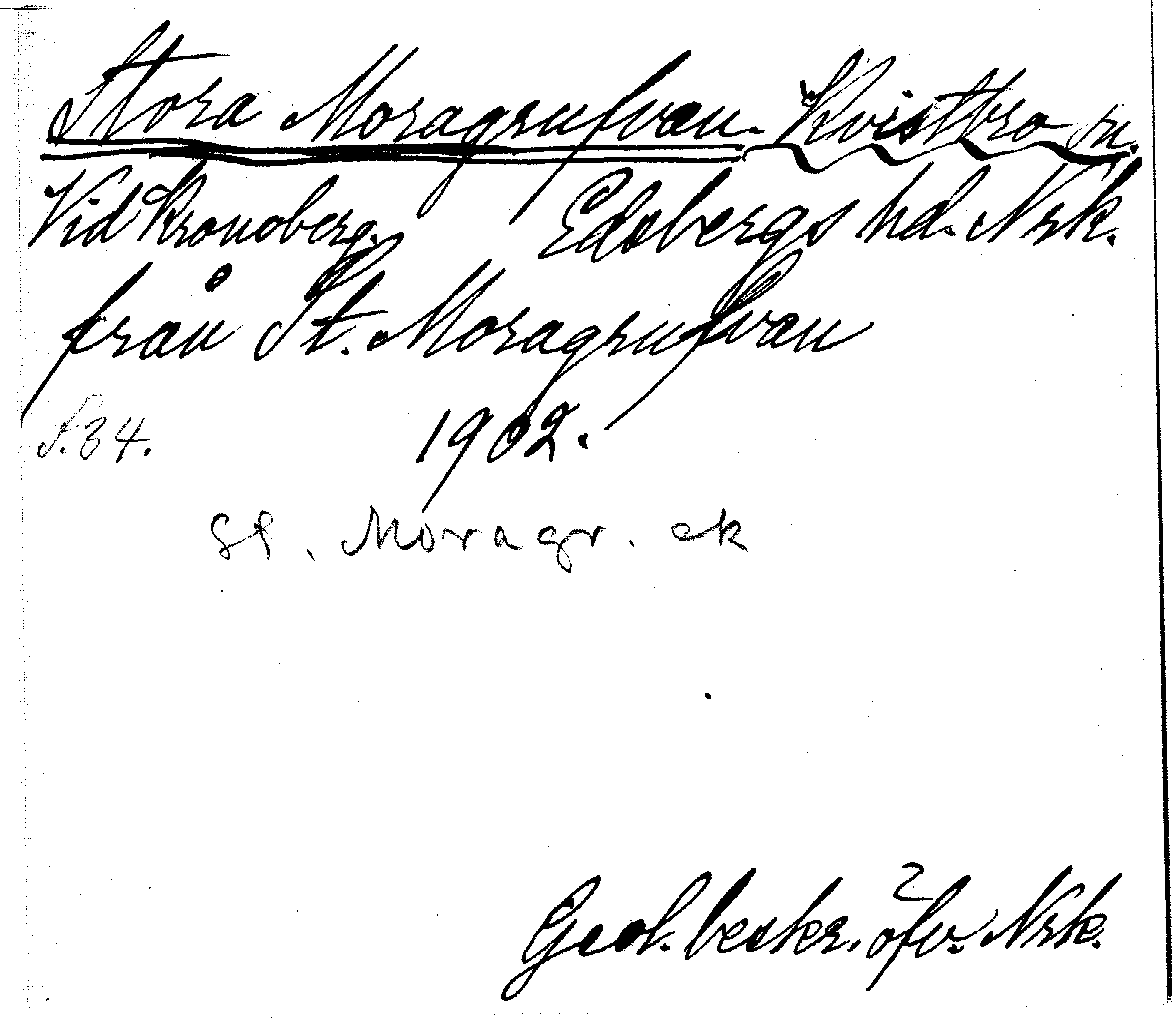 Stora Moragrufvan. Kvistbro sn.
Vid Kronoberg. Edsbergs hd. Nrk.
från St. Moragrufvan
S.34. 1902.
St. Moragr. ek
Geol. beskr. öfv. Nrk.